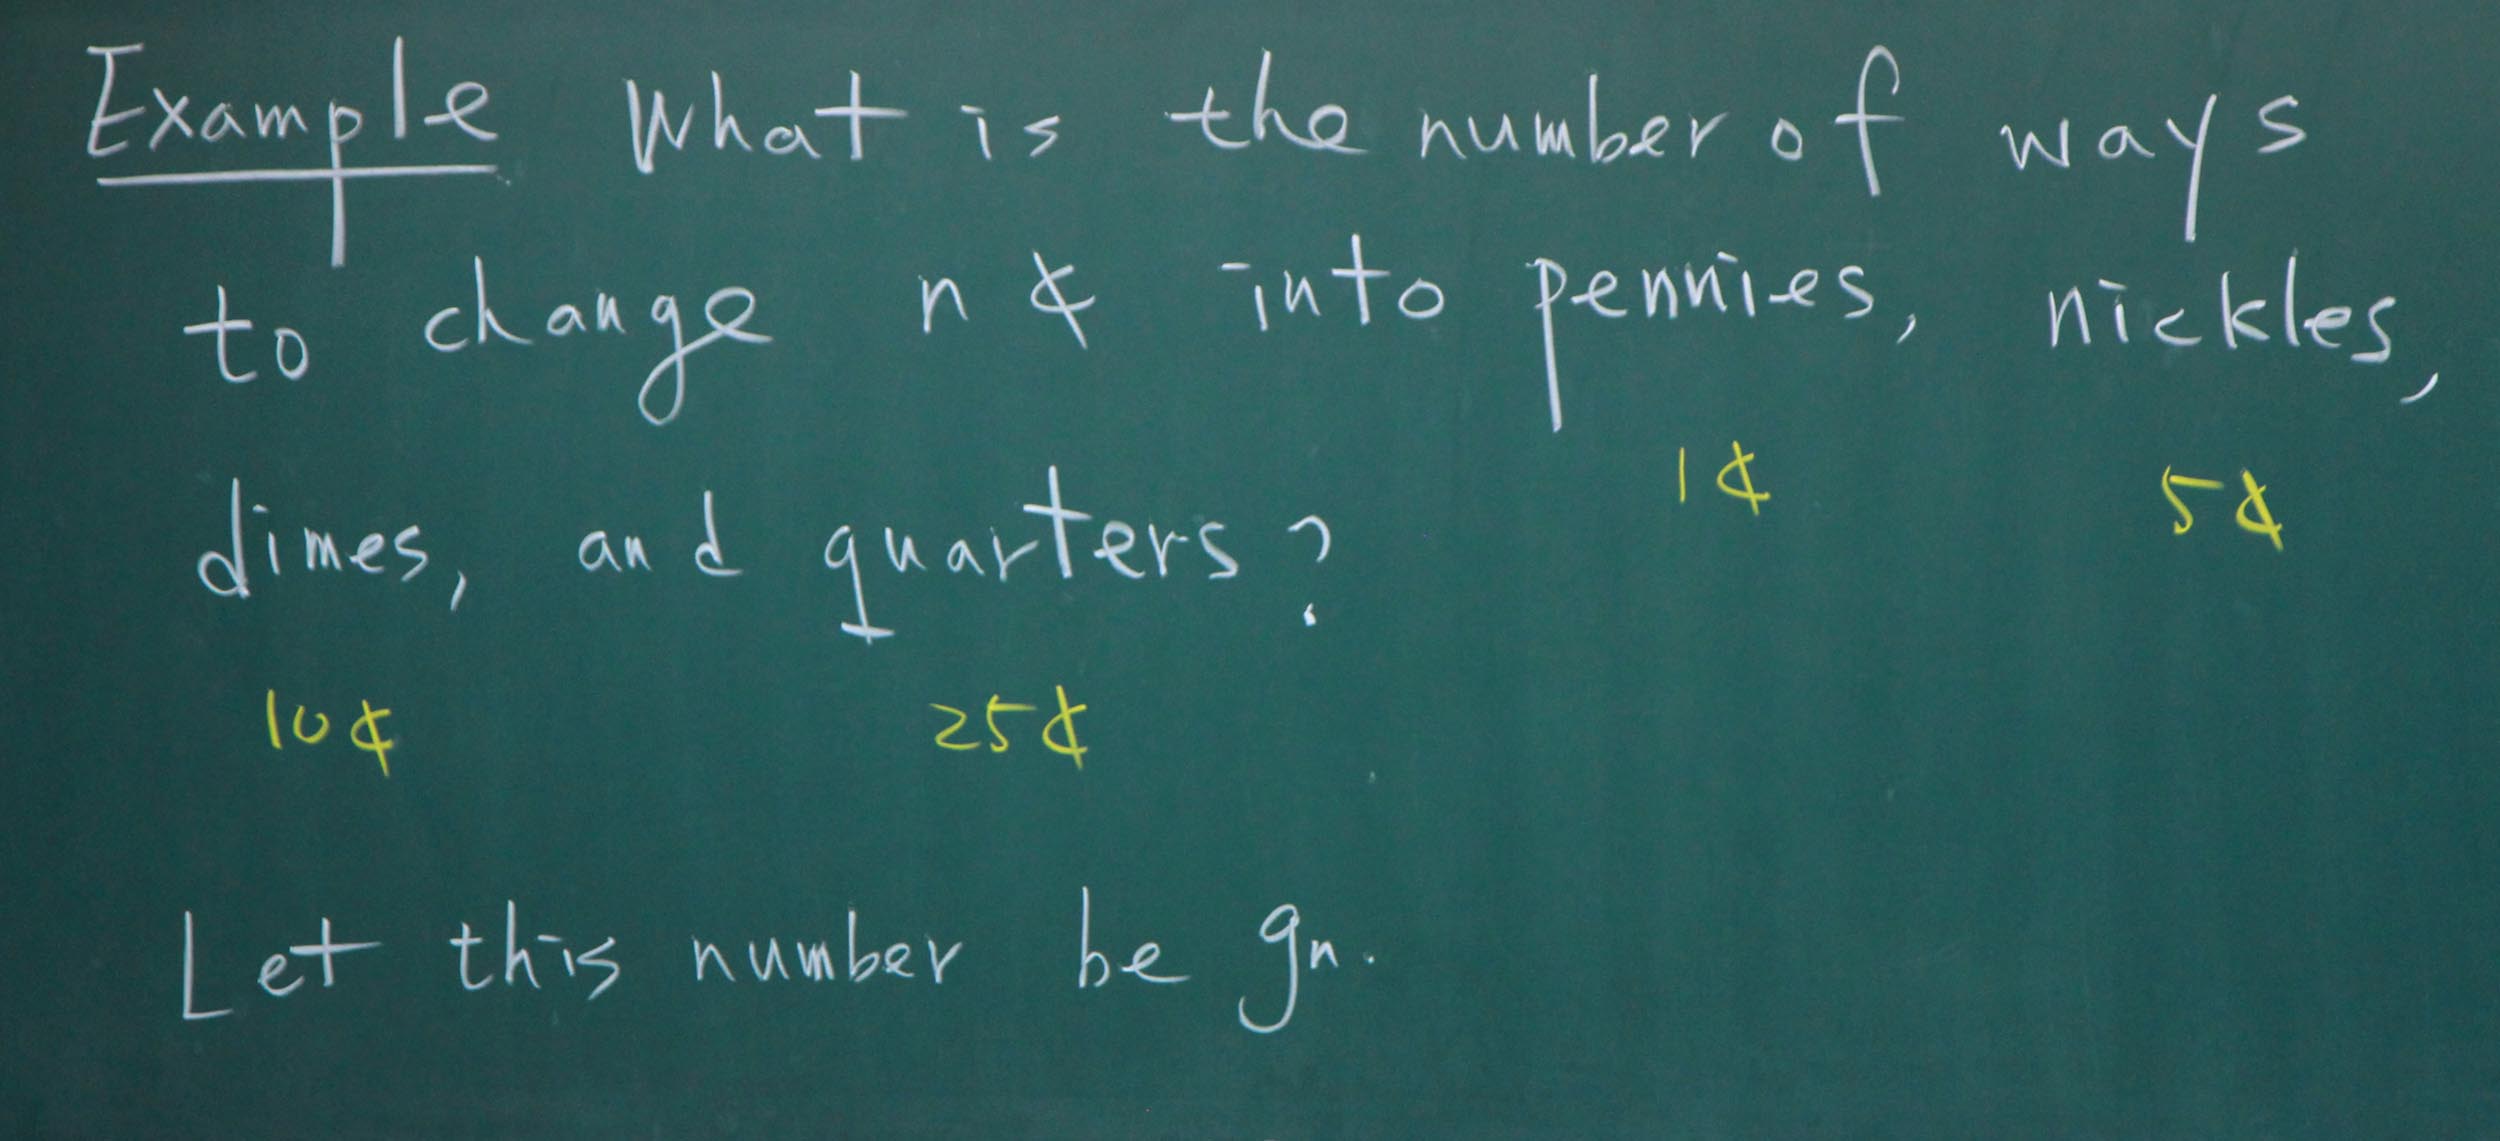 Example What is the number of ways
to change n ¢ into pennies, nickles,
1¢ 5¢
dimes, and quarters?
10¢ 25¢
Let this number be gn.